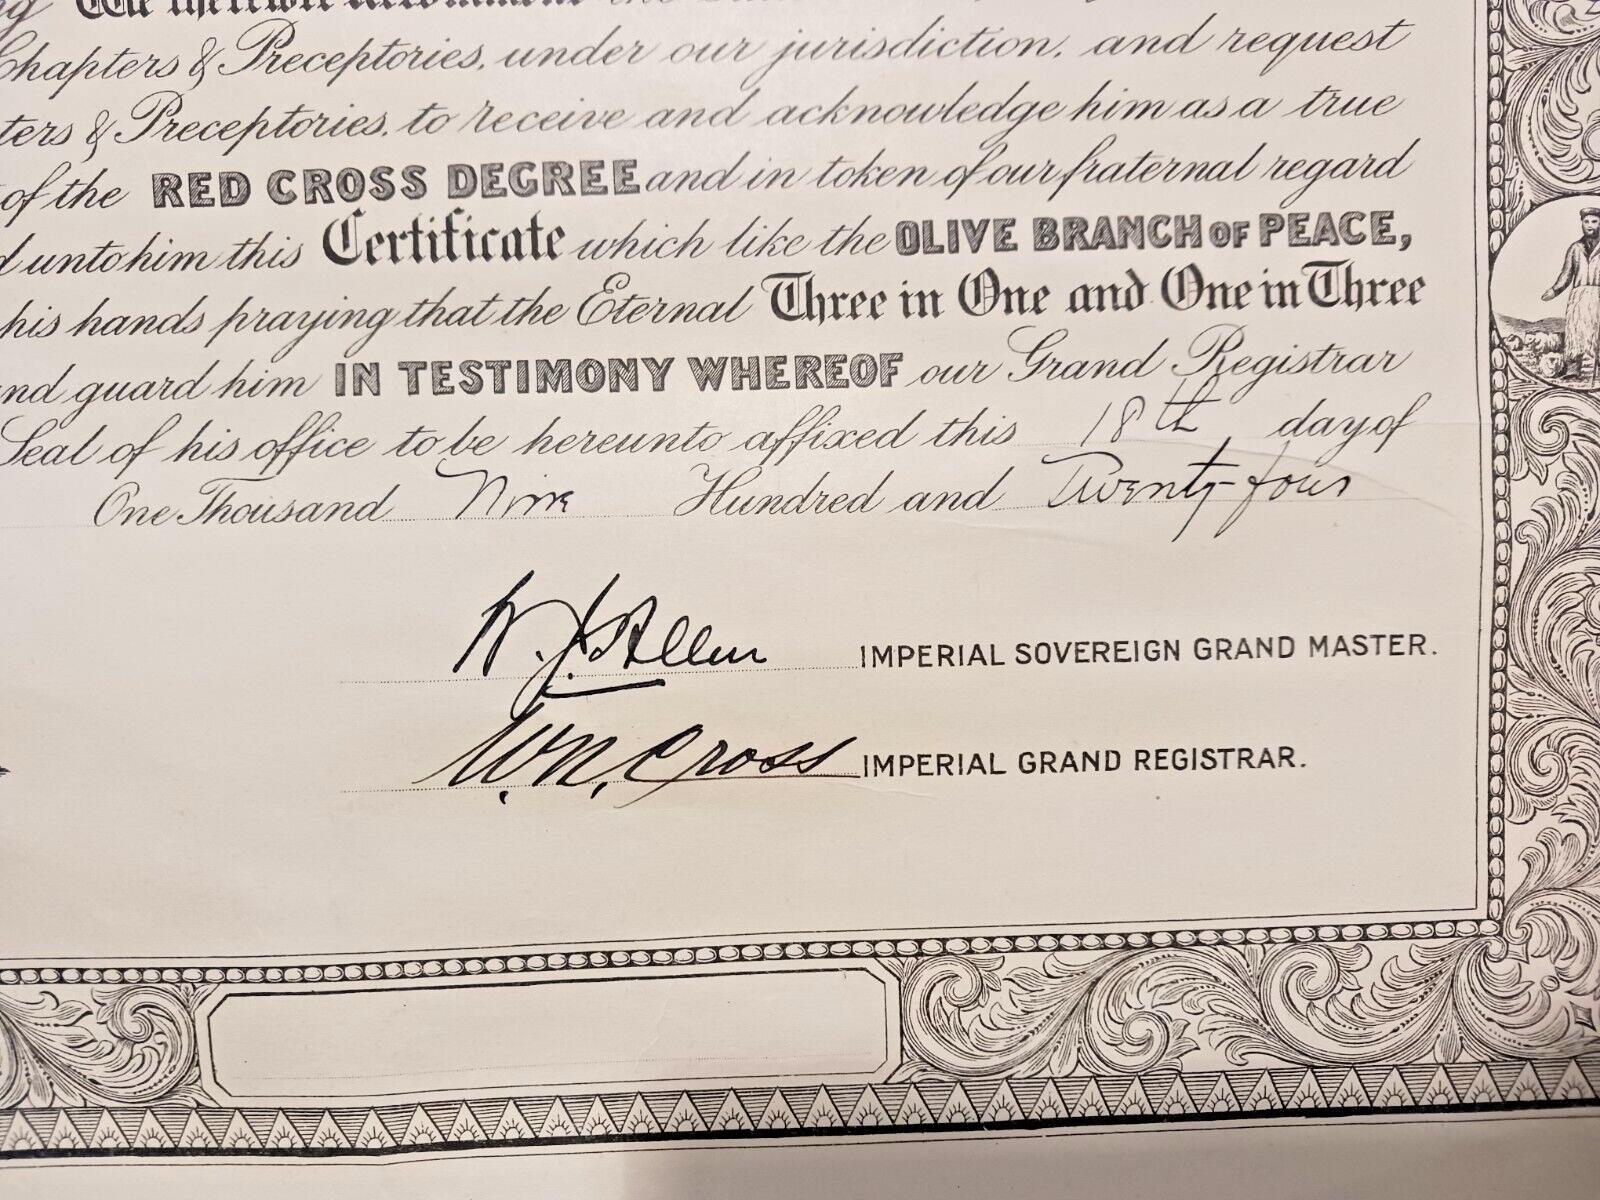 We therefore recommend the
Chapters & Preceptories, under our jurisdiction, and request
ters & Preceptories, to receive and acknowledge him as a true
of the RED CROSS DEGREE and in token of our fraternal regard
d unto him this Certificate which like the OLIVE BRANCH OF PEACE,
his hands praying that the Eternal Three in One and One in Three
nd guard him IN TESTIMONY WHEREOF our Grand Registrar
Seal of his office to be hereunto affixed this 18th day of
One Thousand Nine Hundred and Twenty-four
W. J. Allen IMPERIAL SOVEREIGN GRAND MASTER.
W. N. Cross IMPERIAL GRAND REGISTRAR.